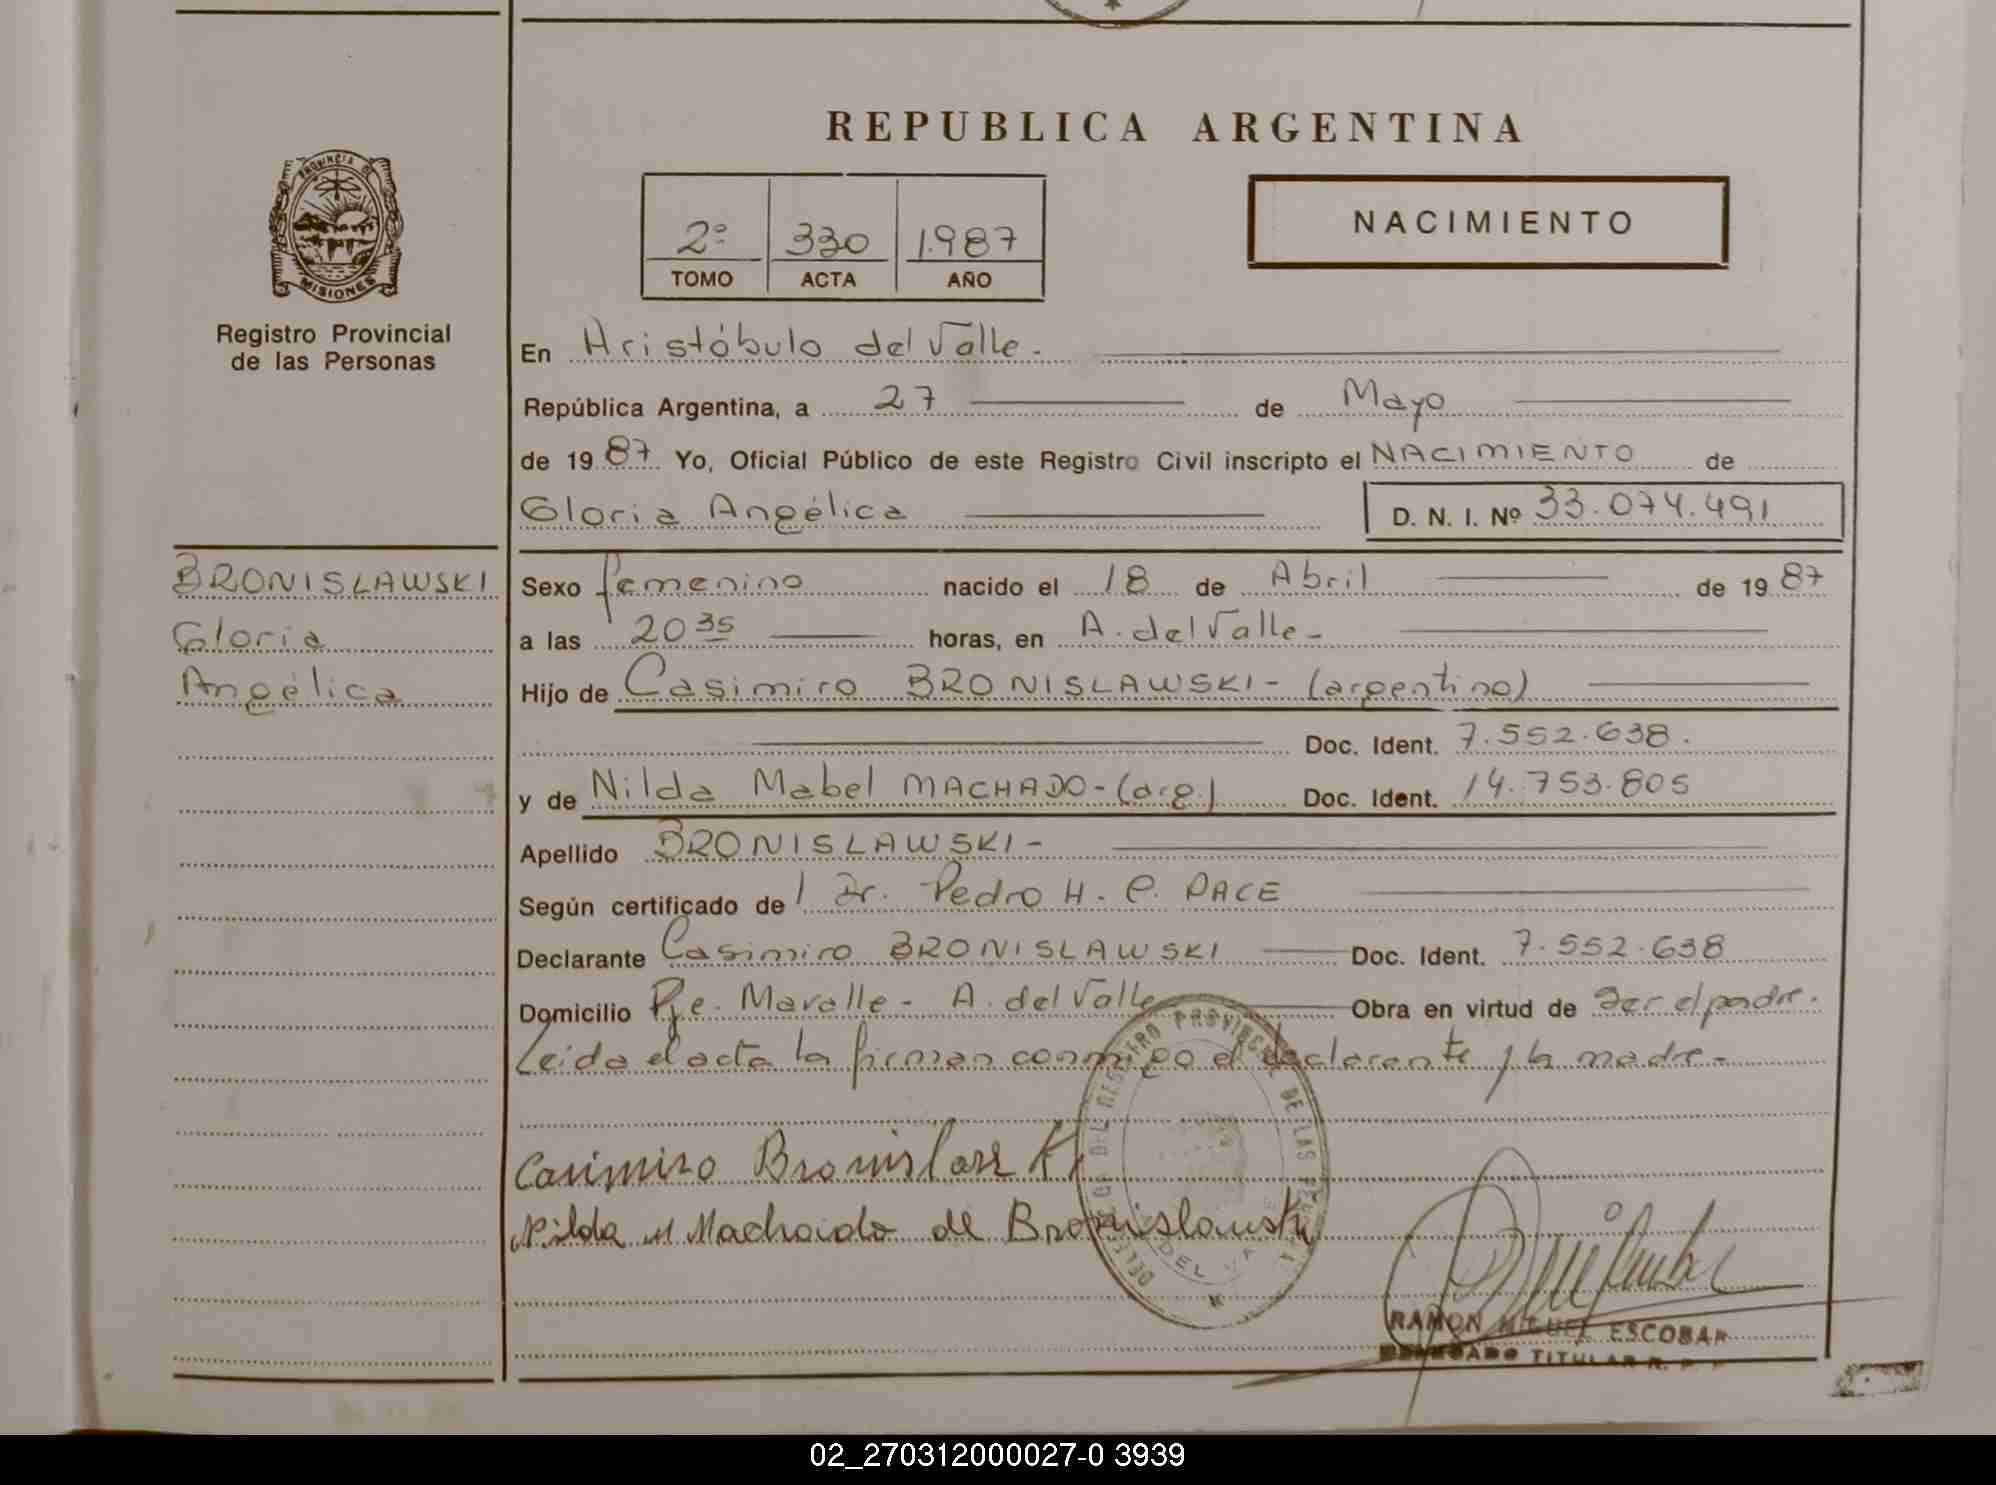 REPUBLICA ARGENTINA
PROVINCIA DE
MISIONES
Registro Provincial
de las Personas
2º 330 1.987
TOMO ACTA AÑO
NACIMIENTO
En Aristóbulo del Valle.
República Argentina, a 27 de Mayo
de 1987 Yo, Oficial Público de este Registro Civil inscripto el NACIMIENTO de
Gloria Angélica D. N. I. Nº 33.074.491
BRONISLAWSKI
Gloria
Angélica
Sexo femenino nacido el 18 de Abril de 1987
a las 20 35 horas, en A. del Valle-
Hijo de Casimiro BRONISLAWSKI- (argentino)
Doc. Ident. 7.552.638.
y de Nilda Mabel MACHADO-(arg.) Doc. Ident. 14.753.805
Apellido BRONISLAWSKI-
Según certificado de Dr. Pedro H. C. PACE
Declarante Casimiro BRONISLAWSKI Doc. Ident. 7.552.638
Domicilio Pje. Maralle- A. del Valle Obra en virtud de ser el padre.
Leida el acta la firman conmigo el declarante y la madre.-
DEL REGISTRO PROVINCIAL DE LAS
DEL VALLE
Casimiro Bronislawski
Nilda M Machado de Bronislawski
RAMON MIGUEL ESCOBAR
DELEGADO TITULAR R. P. P.
02_270312000027-0 3939